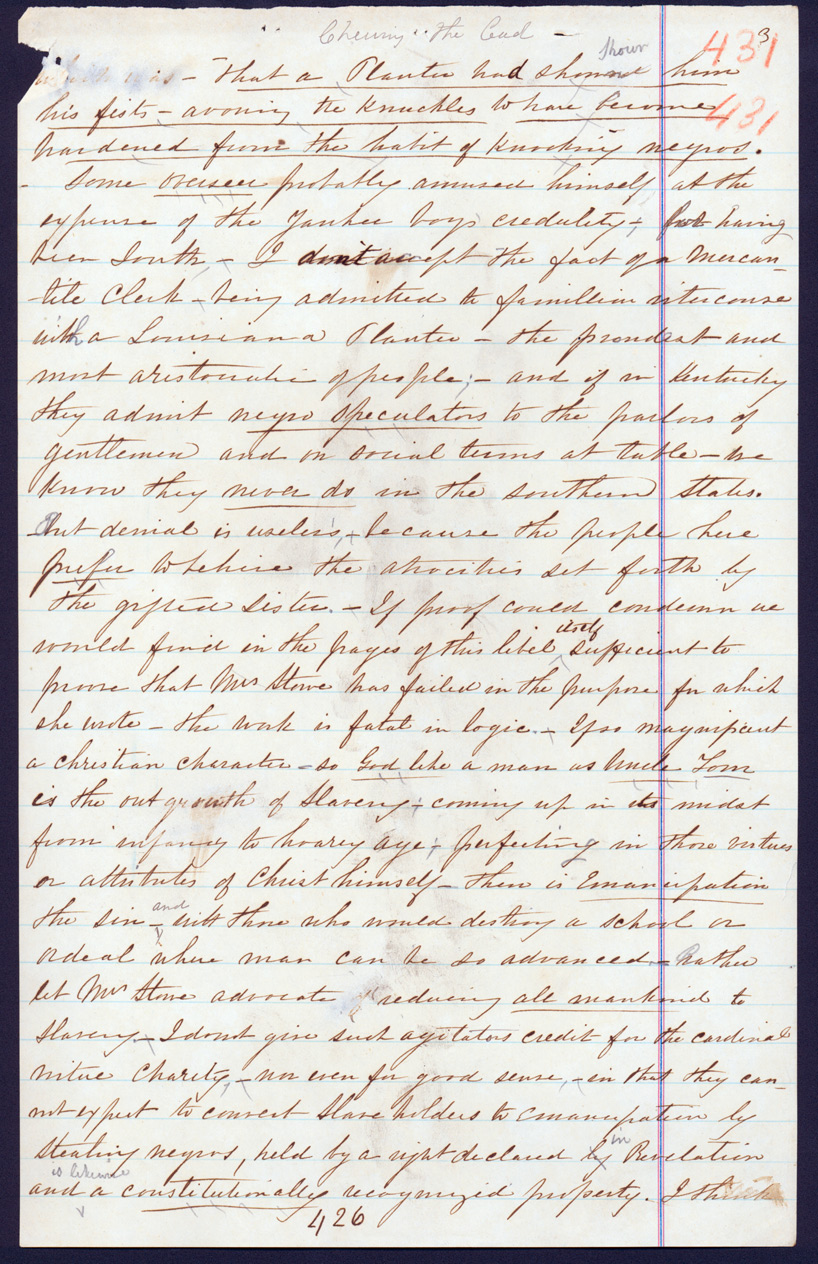 Chewing the Cud - 3
431
shown
was - that a Planter had showed him
431
his fists - avowing the Knuckles to have become
hardened from the habit of Knocking negros.
- Some overseer probably amused himself at the
expense of the Yankee boys credulity; for having
been South - I dont accept the fact of a Mercan-
tile Clerk - being admitted to familliar intercourse
with a Louisiana Planter - the proudest and
most aristocratic of people; - and if in Kentucky
they admit negro speculators to the parlors of
gentlemen and on social terms at table - we
Know they never do in the southern States.
But denial is useless, because the people here
prefer to believe the atrocities set forth by
the gifted sister. - If proof could condemn we
would find in the pages of this libel itself sufficient to
prove that Mrs Stowe has failed in the purpose for which
she wrote - the work is fatal in logic. - If so magnificent
a christian character - so God like a man as Uncle Tom
is the outgrowth of Slavery; coming up in its midst
from infancy to hoary age; perfecting in those virtues
or attributes of Christ himself - then is Emancipation
the sin - and with those who would destroy a school or
ordeal where man can be so advanced - Rather
let Mrs Stowe advocate reducing all mankind to
Slavery - I do not give such agitators credit for the cardinal
virtue Charity, - nor even for good sense, - in that they can-
not expect to convert Slave holders to emancipation by
stealing negros, held by a right declared by in Revelation
is likewise
and a constitutionally recognized property. I think
426